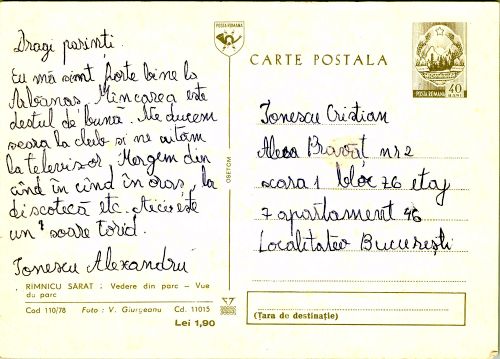 Dragi parinti.
Eu mă simt foarte bine la
Măcarea este
destul de bună. Ne ducem
seara la club și ne uităm
la televizor. Mergem din
când în când în oraș, la
discotecă etc. Aici este
un soare torid.
Ionescu Alexandru
RIMNICU SARAT : Vedere din parc — Vue
du parc
Cod 110/78 Foto : V. Giurgeanu Cd. 11015
Lei 1,90
OBETCM
POSTA ROMANA
CARTE POSTALA
POSTA ROMANA 40 BANI
Ionescu Cristian
Aleea Bravăț nr 2
scara 1 bloc 76 etaj
7 apartament 46
Localitatea București
(Țara de destinație)